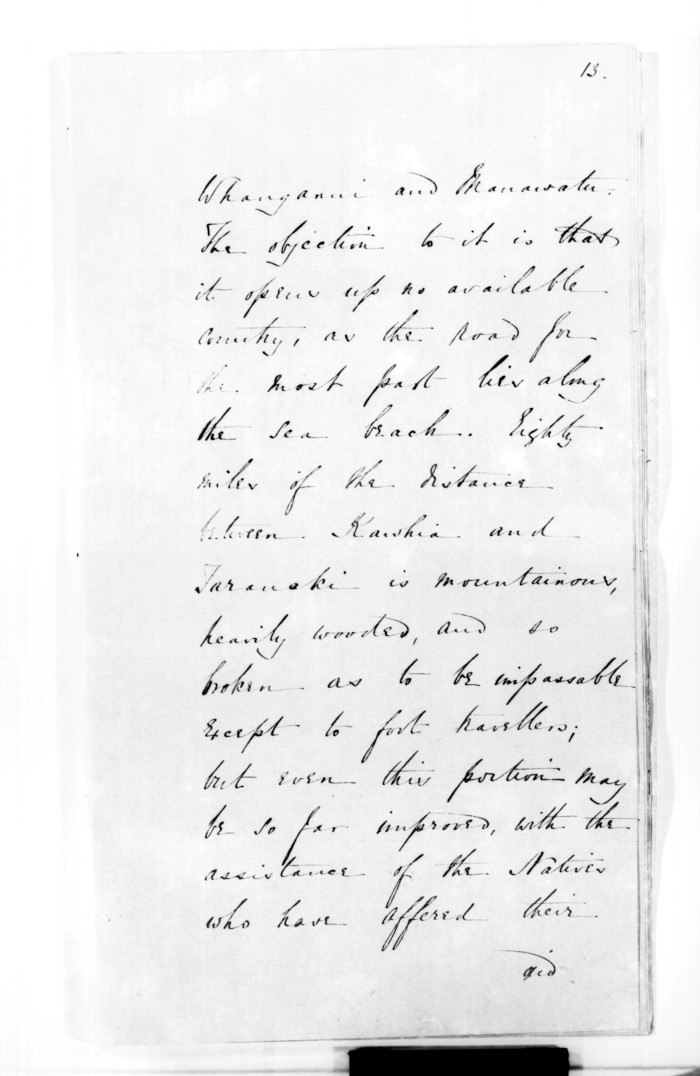 13.
Whanganui and Manawatu.
The objection to it is that
it opens up no available
country, as the road for
the most part lies along
the sea beach. Eighty
miles of the distance
between Kawhia and
Taranaki is mountainous,
heavily wooded, and so
broken as to be impassable
except to foot travellers;
but even this portion may
be so far improved, with the
assistance of the Natives
who have offered their
aid